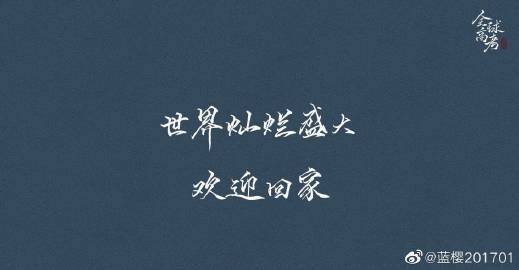 全球高考
世界灿烂盛大
欢迎回家
@蓝樱201701